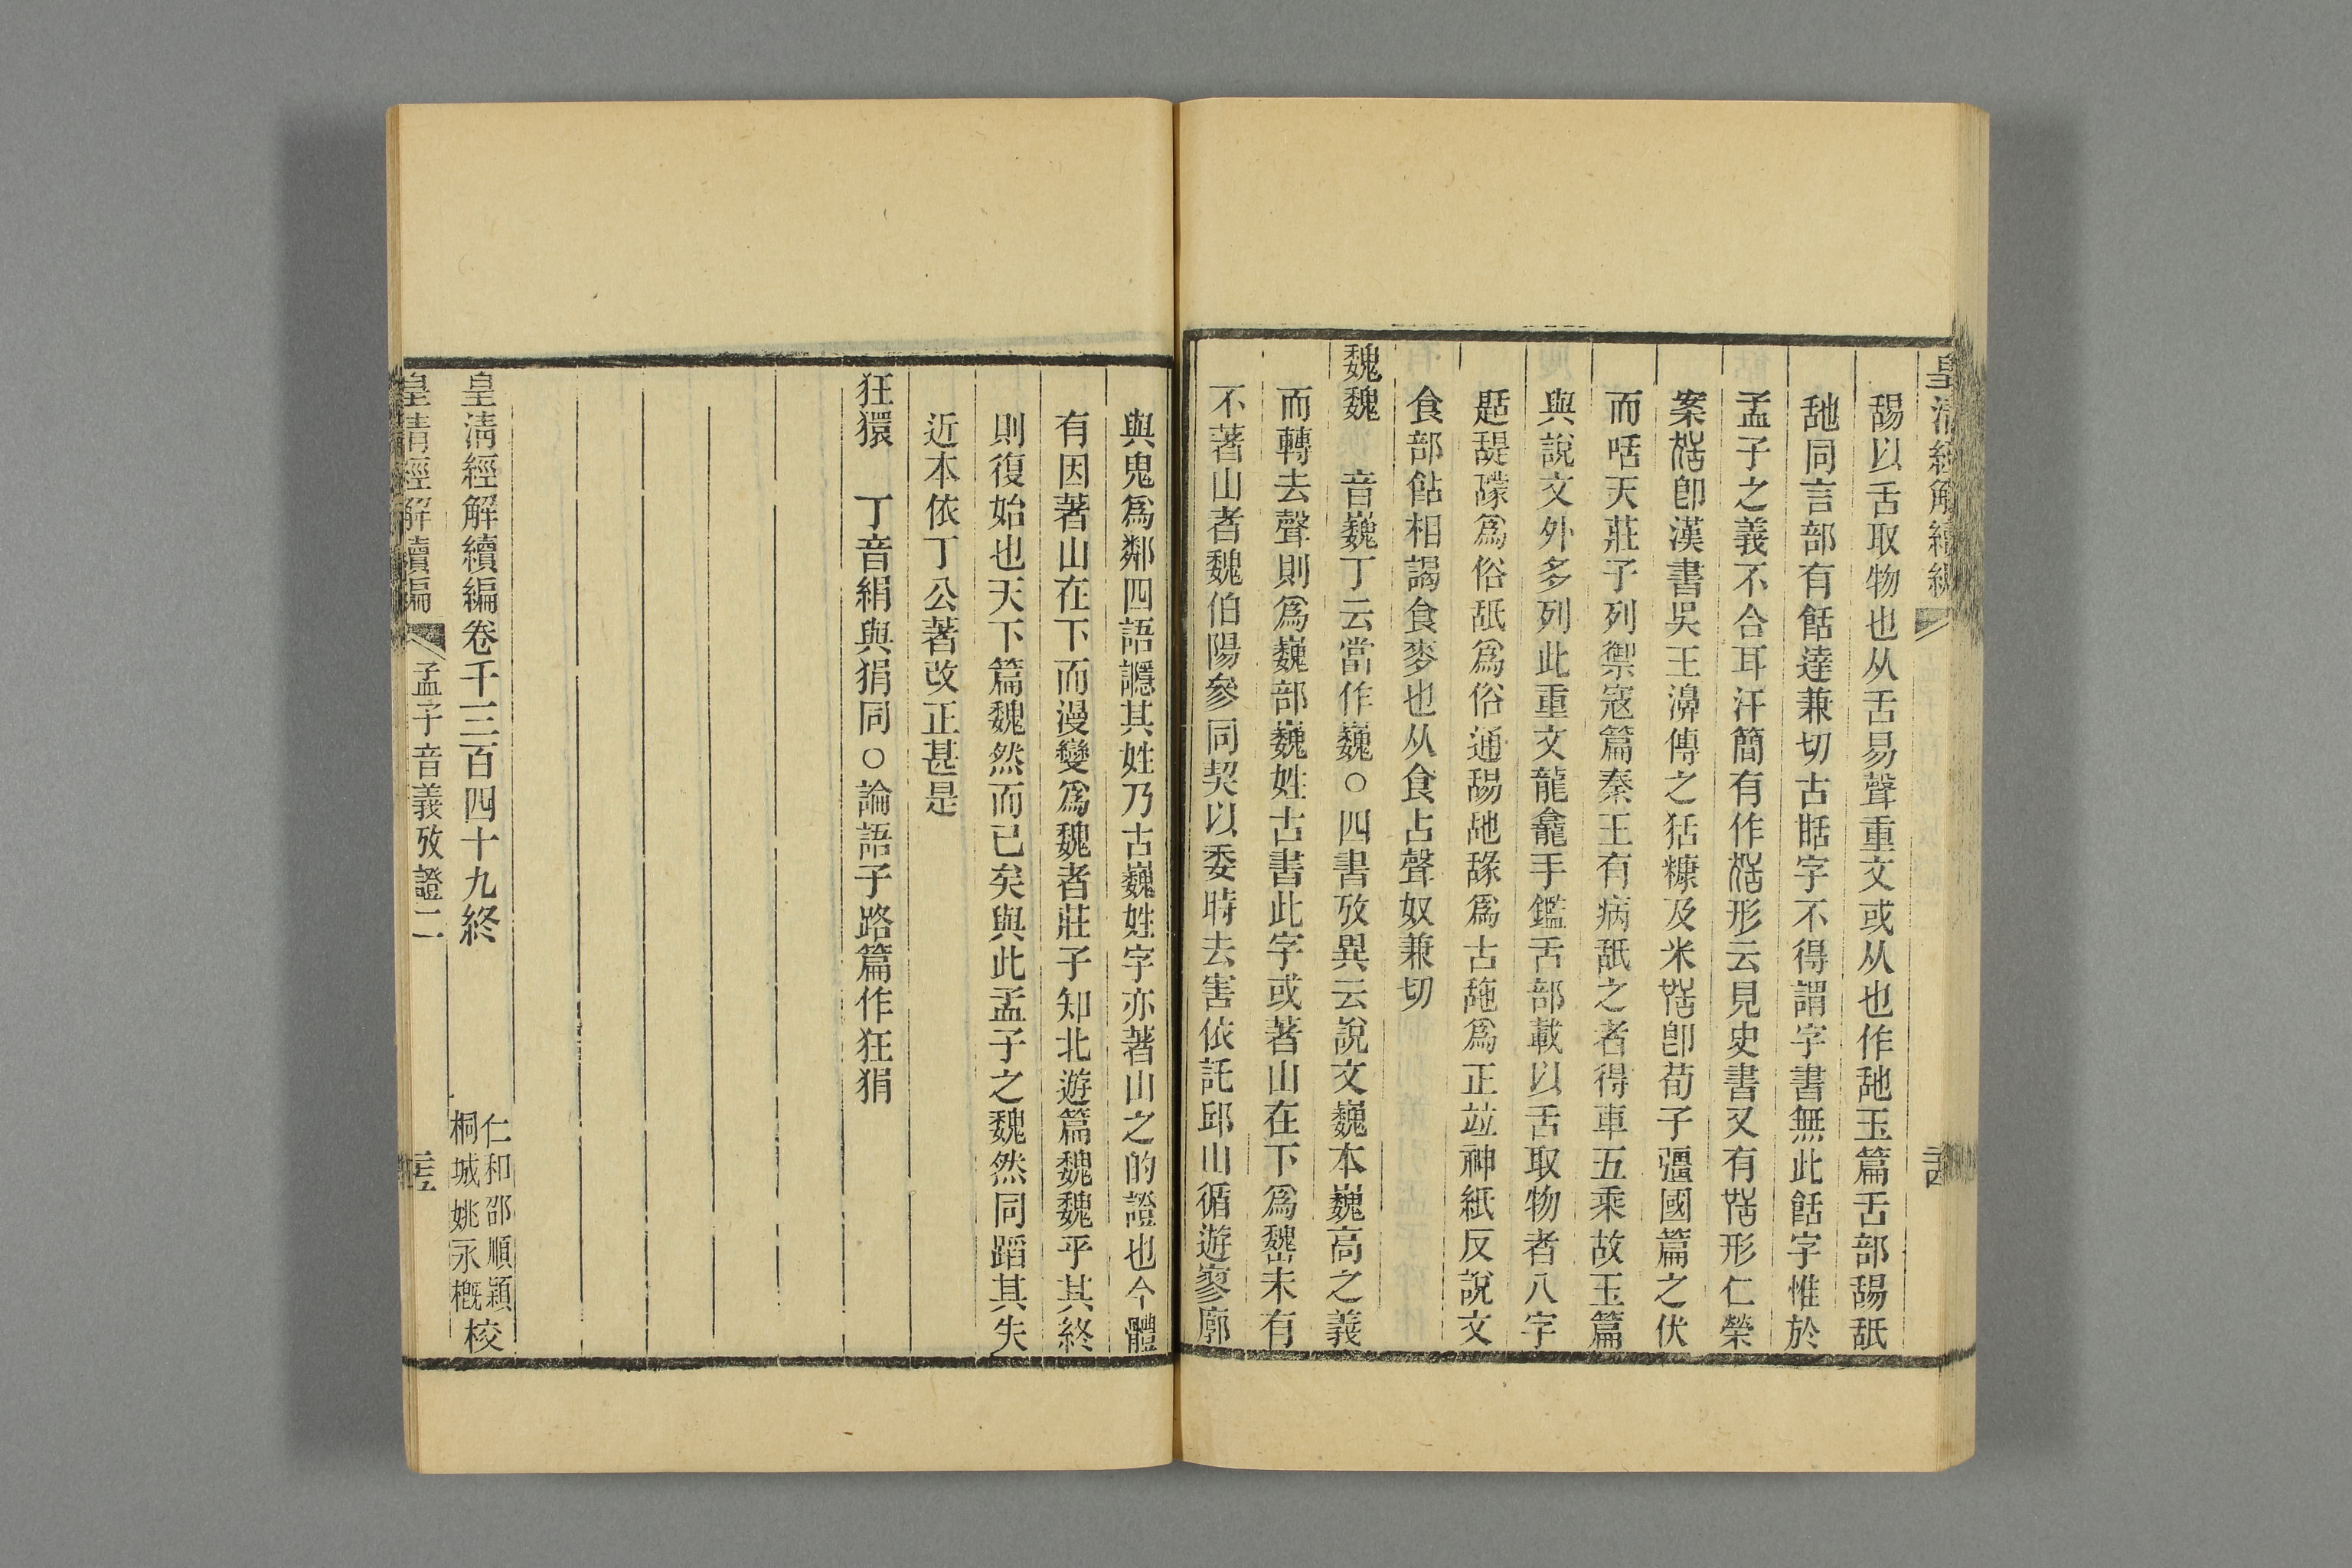 皇清經解續編
舓以舌取物也从舌易聲重文或从也作𦧇玉篇舌部舓舐
𦧇同言部有餂達兼切古甛字不得謂字書無此餂字惟於
孟子之義不合耳汗簡有作形云見史書又有形仁榮
案卽漢書吳王濞傳之狧糠及米卽荀子彊國篇之伏
而咶天莊子列禦寇篇秦王有病舐之者得車五乘故玉篇
與說文外多列此重文龍龕手鑑舌部載以舌取物者八字
爲俗舐爲俗通舓𦧇爲古爲正竝神紙反說文
食部䬯相謁食麥也从食占聲奴兼切
魏魏　音巍丁云當作巍○四書攷異云說文巍本巍高之義
而轉去聲則爲巍部巍姓古書此字或著山在下爲魏未有
不著山者魏伯陽參同契以委時去害依託邱山循遊寥廓
與鬼爲鄰四語讔其姓乃古巍姓字亦著山之的證也今體
有因著山在下而漫變爲魏者莊子知北遊篇魏魏乎其終
則復始也天下篇魏然而已矣與此孟子之魏然同蹈其失
近本依丁公著改正甚是
狂獧　丁音絹與狷同○論語子路篇作狂狷
皇清經解續編卷千三百四十九終
仁和邵順穎
桐城姚永概校
皇清經解續編　孟子音義攷證二